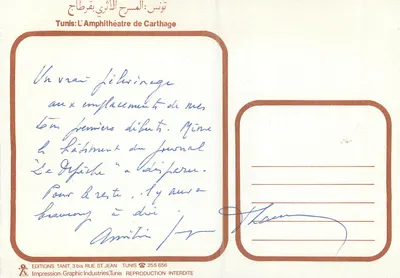 تونس: المسرح الأثري بقرطاج
Tunis: L'Amphithéatre de Carthage
Un vrai pèlerinage
aux emplacements de mes
tous premiers débuts. Même
le bâtiment du journal
"La Dépêche" a disparu.
Pour le reste, il y aura
beaucoup à dire.
EDITIONS TANIT, 3 bis RUE ST JEAN TUNIS ☎ 258 656
Impression: Graphic Industries, Tunis REPRODUCTION INTERDITE